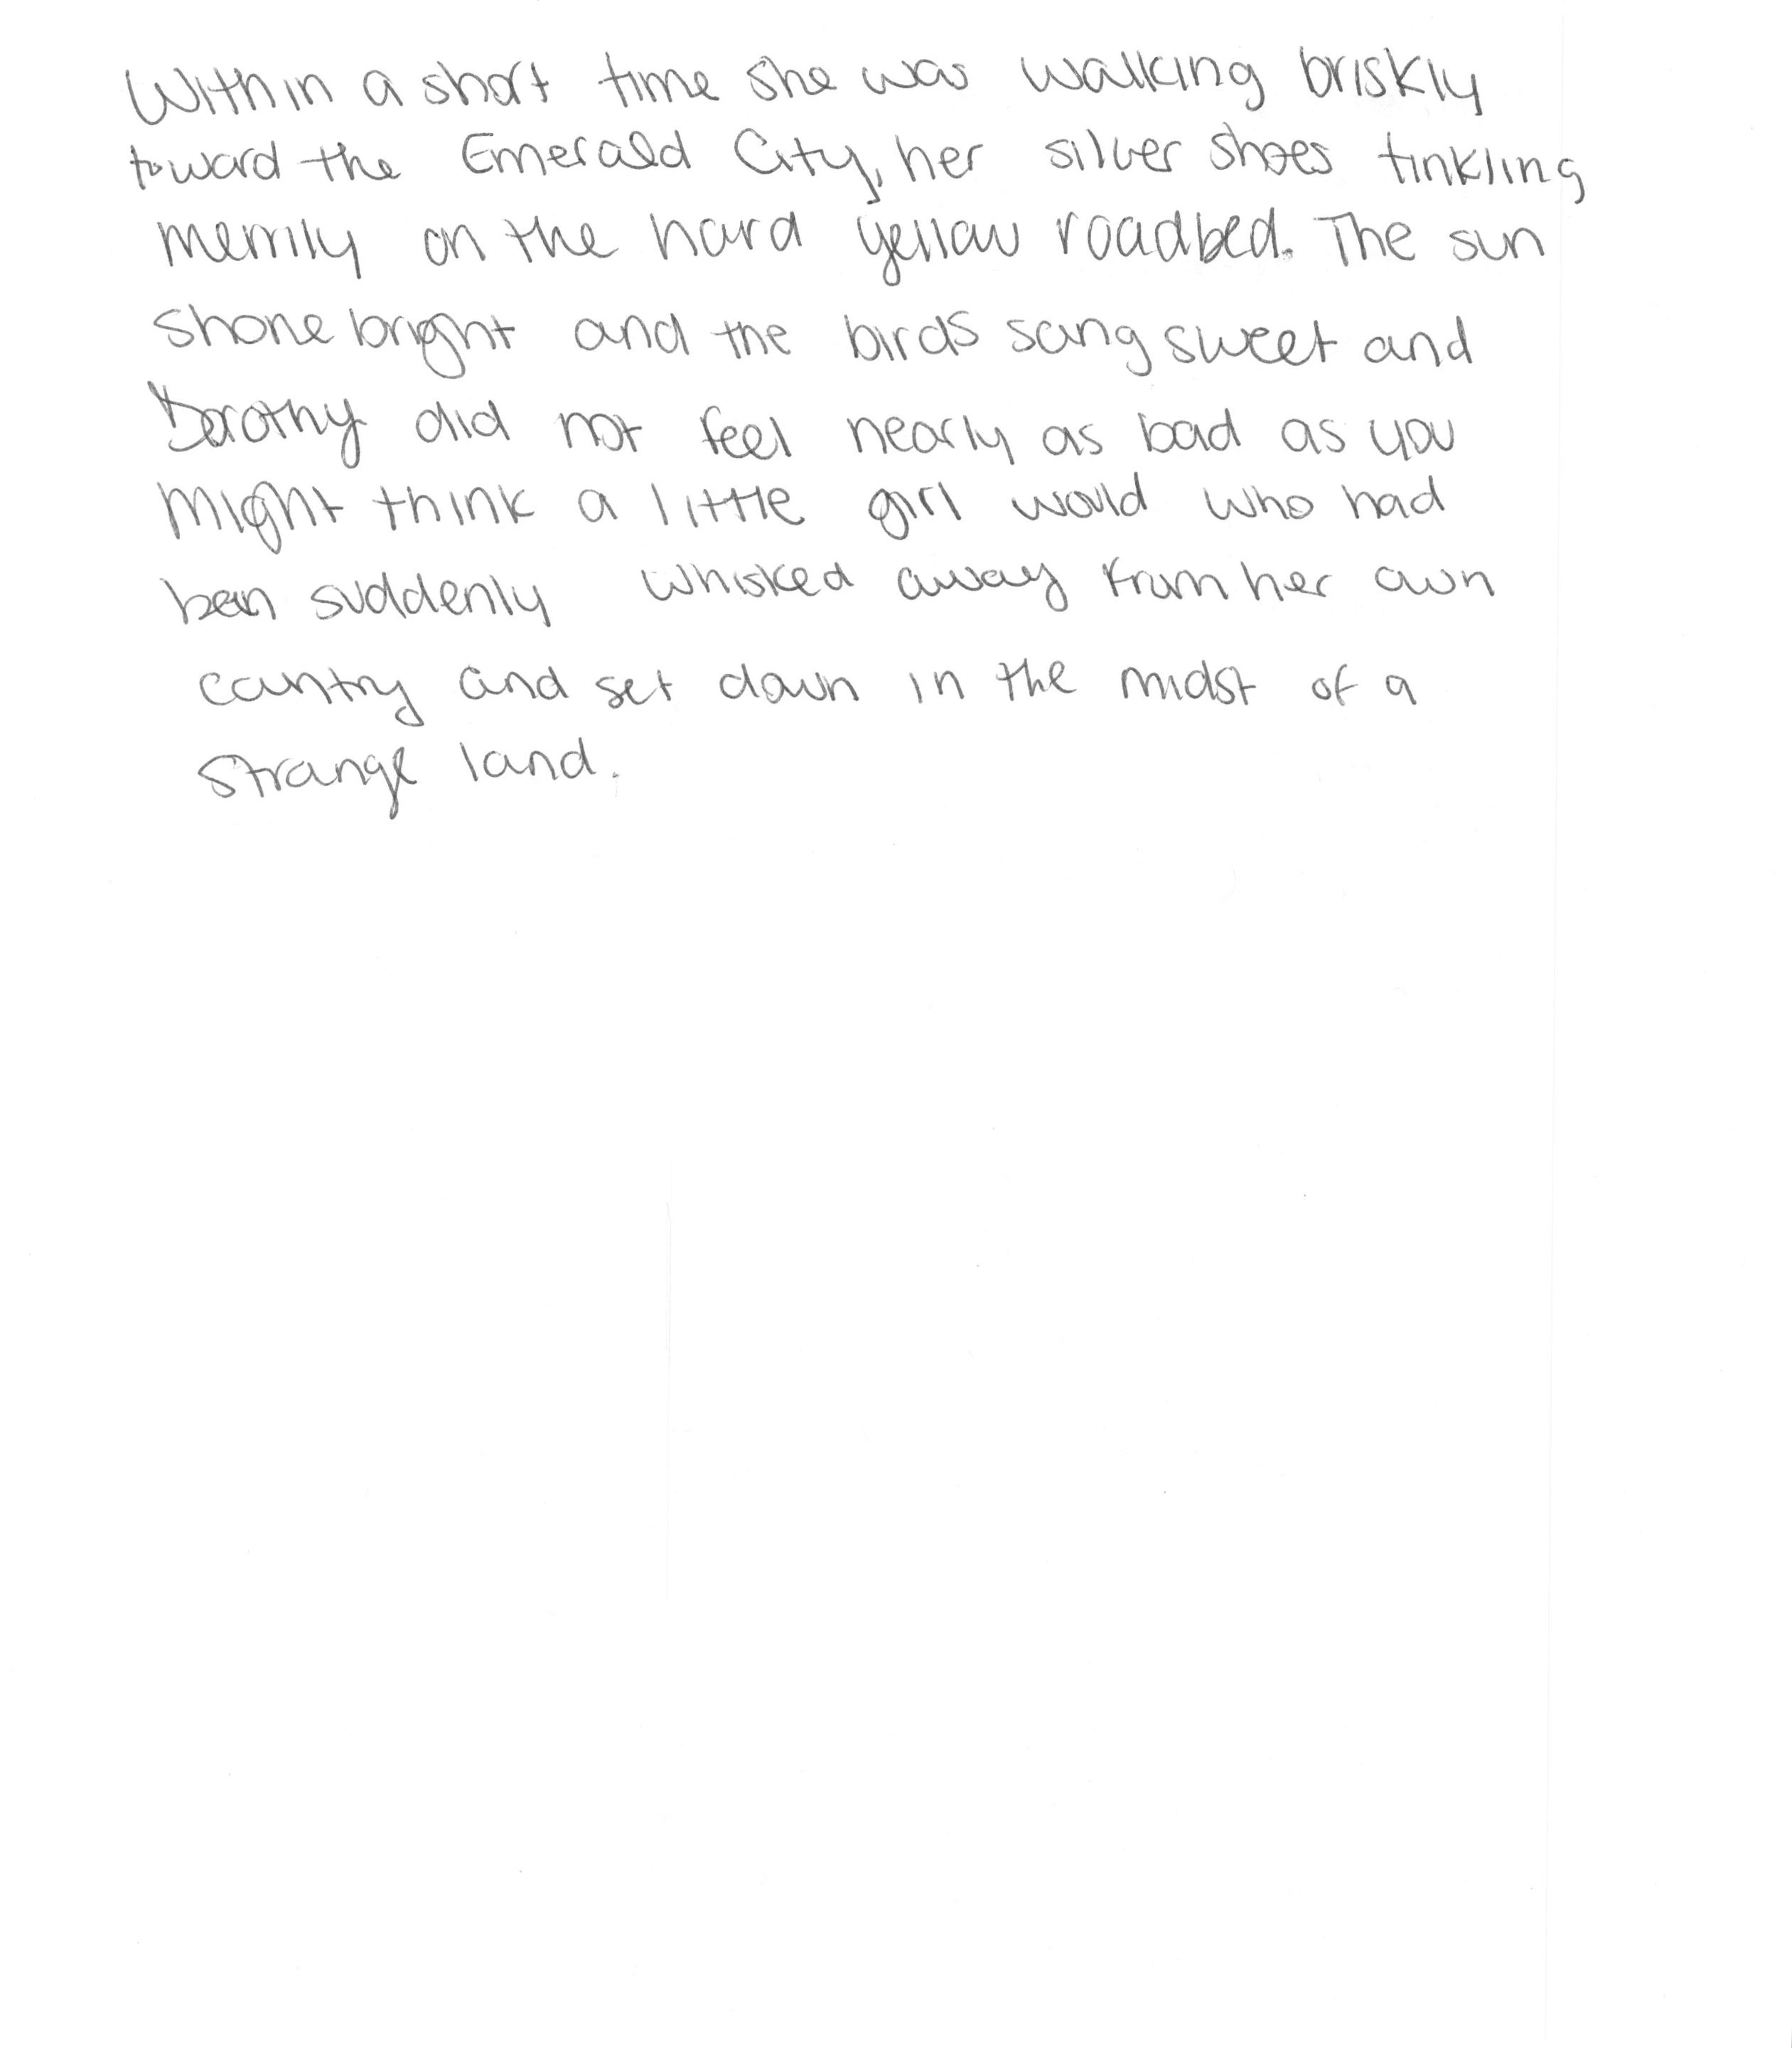 Within a short time she was walking briskly
toward the Emerald City, her silver shoes tinkling
merrily on the hard yellow roadbed. The sun
shone bright and the birds sang sweet and
Dorothy did not feel nearly as bad as you
might think a little girl would who had
been suddenly whisked away from her own
country and set down in the midst of a
strange land.